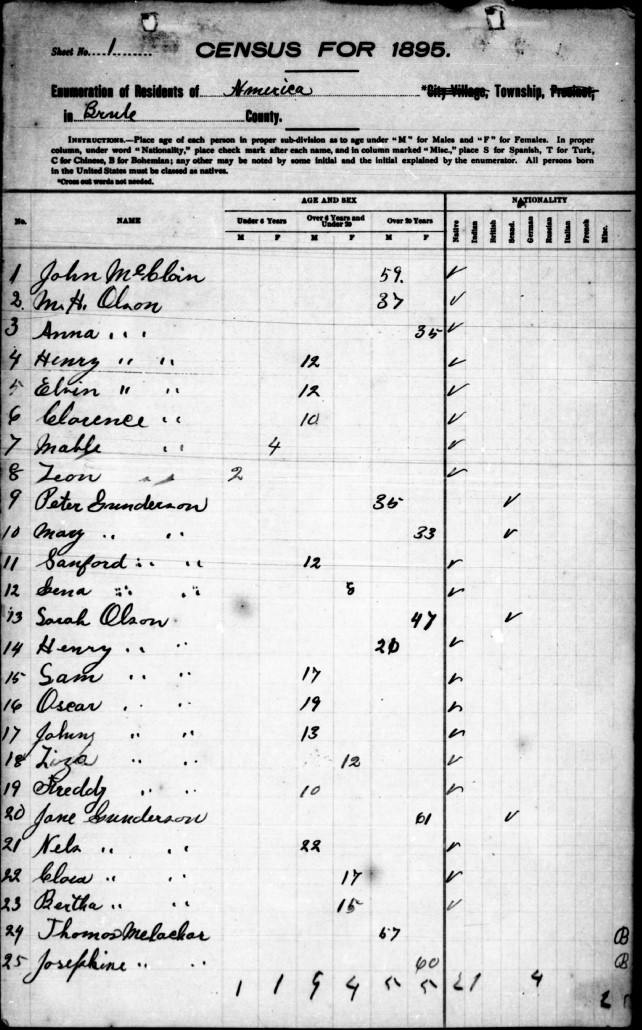 Sheet No. 1
CENSUS FOR 1895.
Enumeration of Residents of America *City Village, Township, Precinct,
in Brule County.
INSTRUCTIONS.—Place age of each person in proper sub-division as to age under "M" for Males and "F" for Females. In proper
column, under word "Nationality," place check mark after each name, and in column marked "Misc.," place S for Spanish, T for Turk,
C for Chinese, B for Bohemian; any other may be noted by some initial and the initial explained by the enumerator. All persons born
in the United States must be classed as natives.
*Cross out words not needed.
AGE AND SEX NATIONALITY
No. NAME Under 6 Years Over 6 Years and Under 20 Over 20 Years
M F M F M F Native Indian British Scand. German Russian Italian French Misc.
1 John McClain 59. ✓
2. M. H. Olson 37 ✓
3 Anna " " 35 ✓
4 Henry " " 12 ✓
5 Elvin " " 12 ✓
6 Clarence " 10 ✓
7 Mable " 4 ✓
8 Leon " 2 ✓
9 Peter Gunderson 35 ✓
10 Mary " " 33 ✓
11 Sanford " " 12 ✓
12 Lena " " 8 ✓
13 Sarah Olson 47 ✓
14 Henry " " 20 ✓
15 Sam " " 17 ✓
16 Oscar " " 19 ✓
17 Johny " " 13 ✓
18 Liza " " 12 ✓
19 Freddy " " 10 ✓
20 Jane Gunderson 61 ✓
21 Nels " " 22 ✓
22 Clara " " 17 ✓
23 Bertha " " 15 ✓
24 Thomas 57 B
25 Josephine " " 60 B
1 1 9 4 5 5 21 4 2